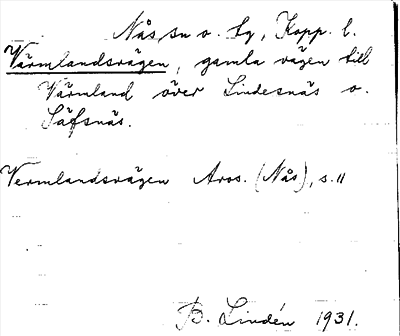 Nås sn o. tg, Kopp. l.
Värmlandsvägen, gamla vägen till
Värmland över Lindesnäs o.
Säfsnäs.
Vermlandsvägen Aros. (Nås), s. 11
B. Lindén 1931.